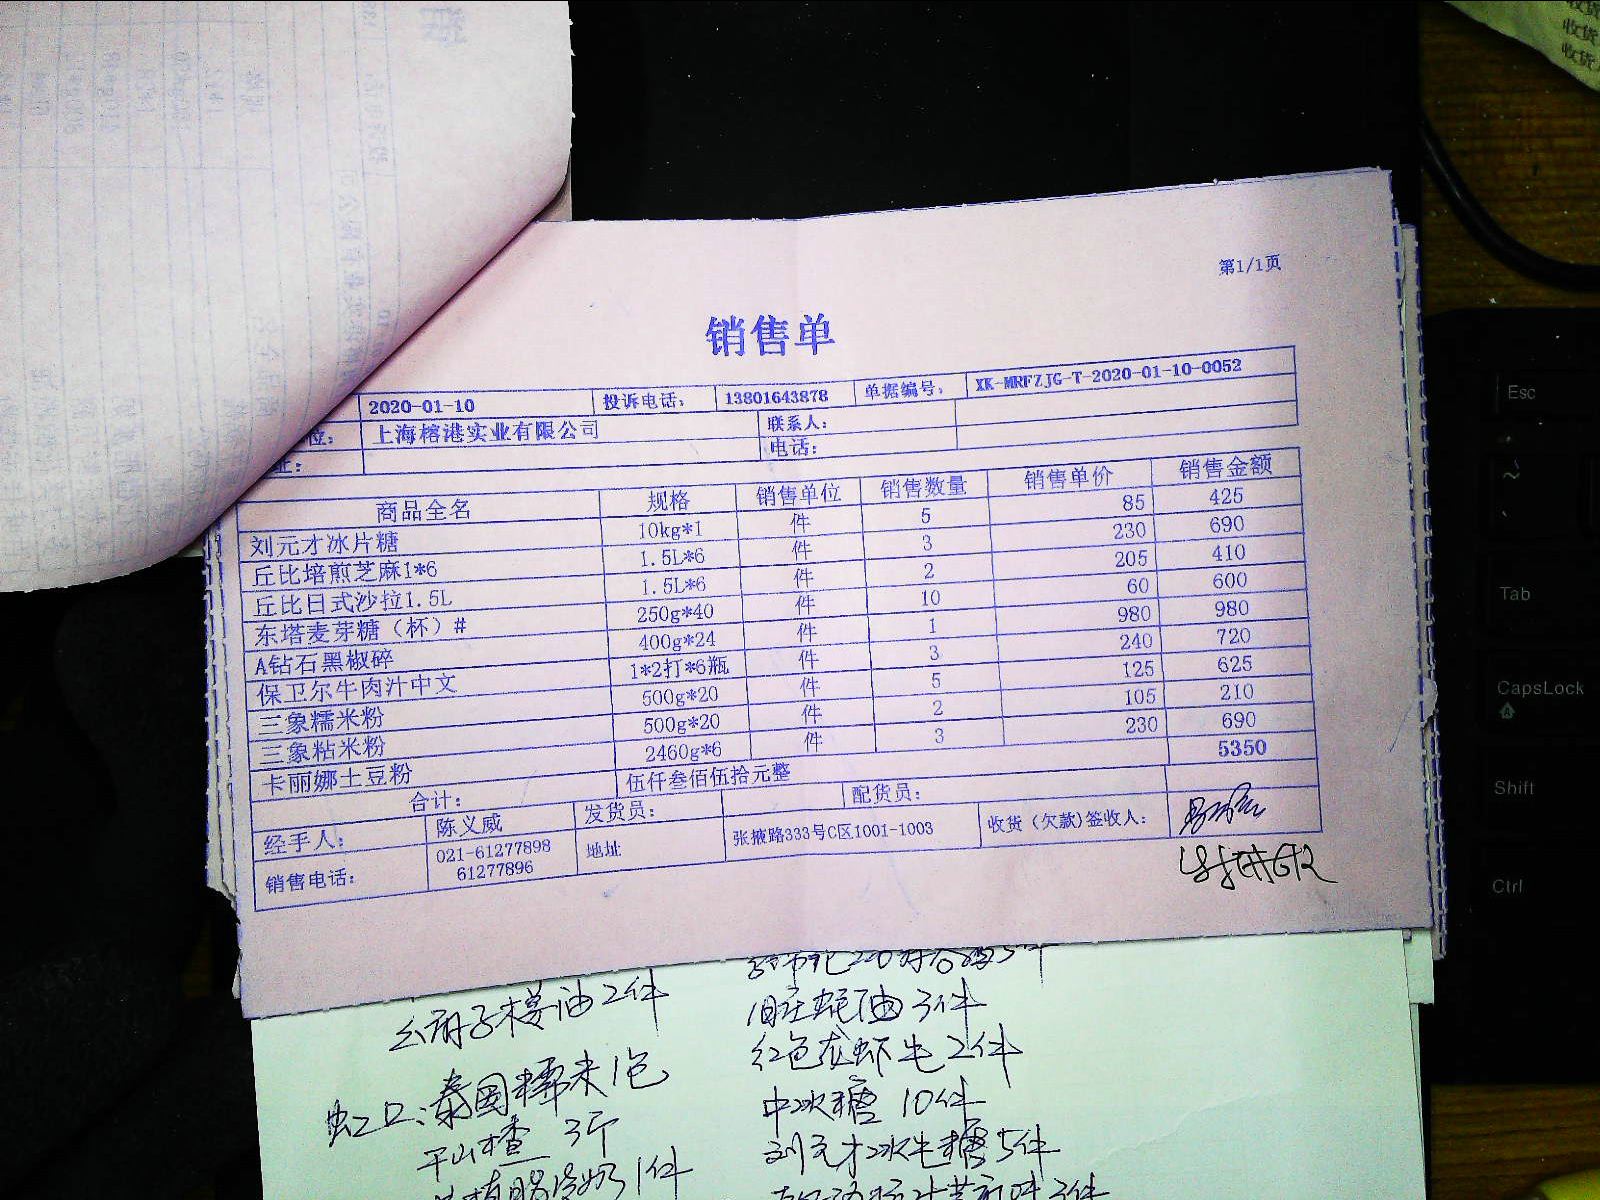 第1/1页
销售单
2020-01-10 投诉电话: 13801643878 单据编号: XK-MRFZJG-T-2020-01-10-0052
位: 上海榕港实业有限公司 联系人:
址: 电话:
商品全名 规格 销售单位 销售数量 销售单价 销售金额
刘元才冰片糖 10kg*1 件 5 85 425
丘比培煎芝麻1*6 1.5L*6 件 3 230 690
丘比日式沙拉1.5L 1.5L*6 件 2 205 410
东塔麦芽糖（杯）# 250g*40 件 10 60 600
A钻石黑椒碎 400g*24 件 1 980 980
保卫尔牛肉汁中文 1*2打*6瓶 件 3 240 720
三象糯米粉 500g*20 件 5 125 625
三象粘米粉 500g*20 件 2 105 210
卡丽娜土豆粉 2460g*6 件 3 230 690
合计: 伍仟叁佰伍拾元整 5350
经手人: 陈义威 发货员: 配货员:
销售电话: 021-61277898 地址 张掖路333号C区1001-1003 收货（欠款)签收人:
61277896
楼油2件
旧庄蚝油3件
红色龙虾毛2件
虹口:泰国糯米1包
中冰糖10件
平山楂3斤
刘元才冰毛糖5件
1件
Esc
Tab
CapsLock
Shift
Ctrl
收货
收货